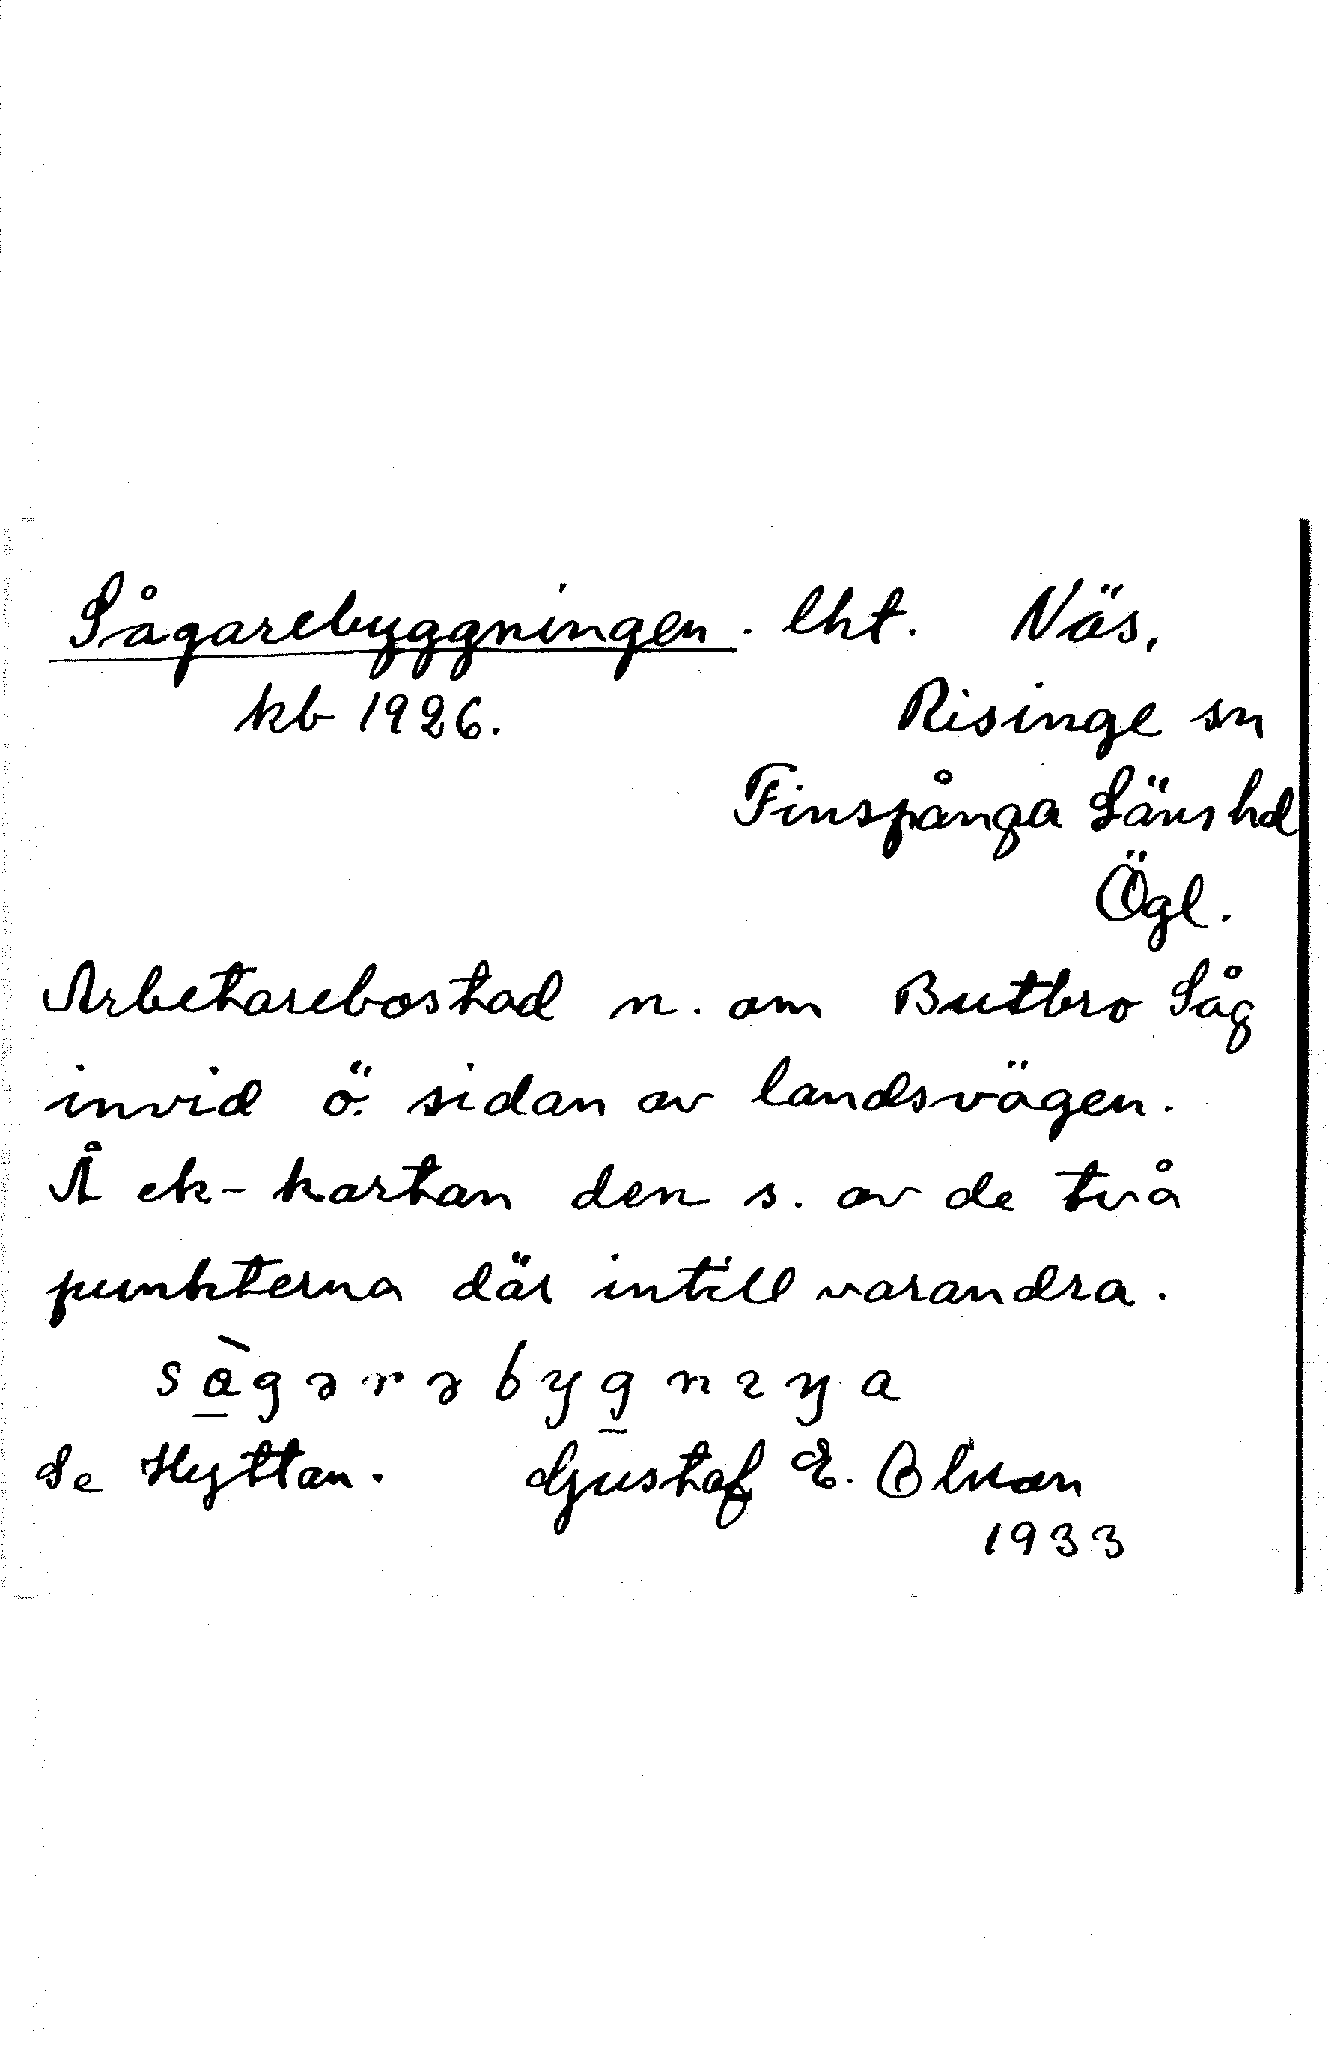 Sågarebyggningen. lht. Näs,
kb 1926. Risinge sn
Finspånga Läns hd
Ögl.
Arbetarebostad n. om Butbro Såg
invid ö. sidan av landsvägen.
Å ek-kartan den s. av de två
punkterna där intill varandra.
sàgərəbygnıŋa
Se Hyttan. Gustaf E. Olson
1933